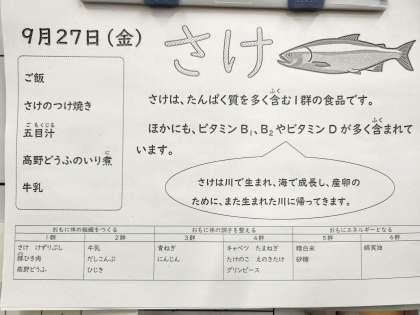 9月27日(金)
さけ
ご飯
さけのつけ焼き
五目汁
高野どうふのいり煮
牛乳
さけは、たんぱく質を多く含む1群の食品です。
ほかにも、ビタミンB1、B2やビタミンDが多く含まれて
います。
さけは川で生まれ、海で成長し、産卵の
ために、また生まれた川に帰ってきます。
おもに体の組織をつくる おもに体の調子を整える おもにエネルギーとなる
1群 2群 3群 4群 5群 6群
さけ けずりぶし 牛乳 青ねぎ キャベツ たまねぎ 精白米 綿実油
豚ひき肉 だしこんぶ にんじん たけのこ えのきたけ 砂糖
高野どうふ ひじき グリンピース